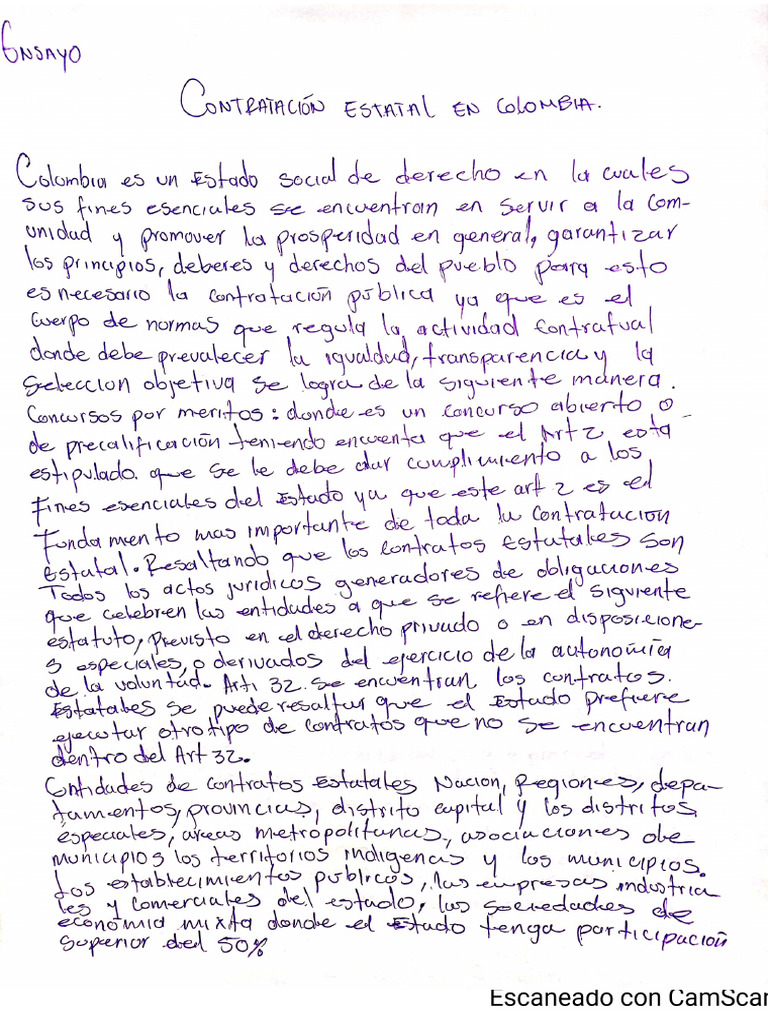 Ensayo
Contratación Estatal en Colombia.
Colombia es un Estado social de derecho en la cuales
sus fines esenciales se encuentran en servir a la com-
unidad y promover la prosperidad en general, garantizar
los principios, deberes y derechos del pueblo para esto
es necesario la contratación pública ya que es el
cuerpo de normas que regula la actividad contratual
donde debe prevalecer la igualdad, transparencia y la
seleccion objetiva se logra de la siguiente manera.
Concursos por meritos: donde es un concurso abierto o
de precalificación teniendo encuenta que el Art 2 esta
estipulado. que se le debe dar cumplimiento a los
fines esenciales del Estado ya que este art 2 es el
Fundamento mas importante de toda la contratación
Estatal. Resaltando que los contratos Estatales son
Todos los actos jurídicos generadores de obligaciones
que celebren las entidades a que se refiere el siguiente
estatuto, previsto en el derecho privado o en disposicione-
s especiales, o derivados del ejercicio de la autonomía
de la voluntad. Art. 32. Se encuentran los contratos.
Estatales se puede resaltar que el Estado prefiere
ejecutar otro tipo de contratos que no se encuentran
dentro del Art 32.
Entidades de contratos Estatales Nacion, Regiones, depa-
tamentos, provincias, distrito capital y los distritos
especiales, areas metropolitanas, asociaciones de
municipios los territorios indigenas y los municipios.
Los establecimientos publicos, las empresas industria
les y comerciales del estado, las sociedades de
economia mixta donde el Estado tenga participación
superior del 50%
Escaneado con CamScan